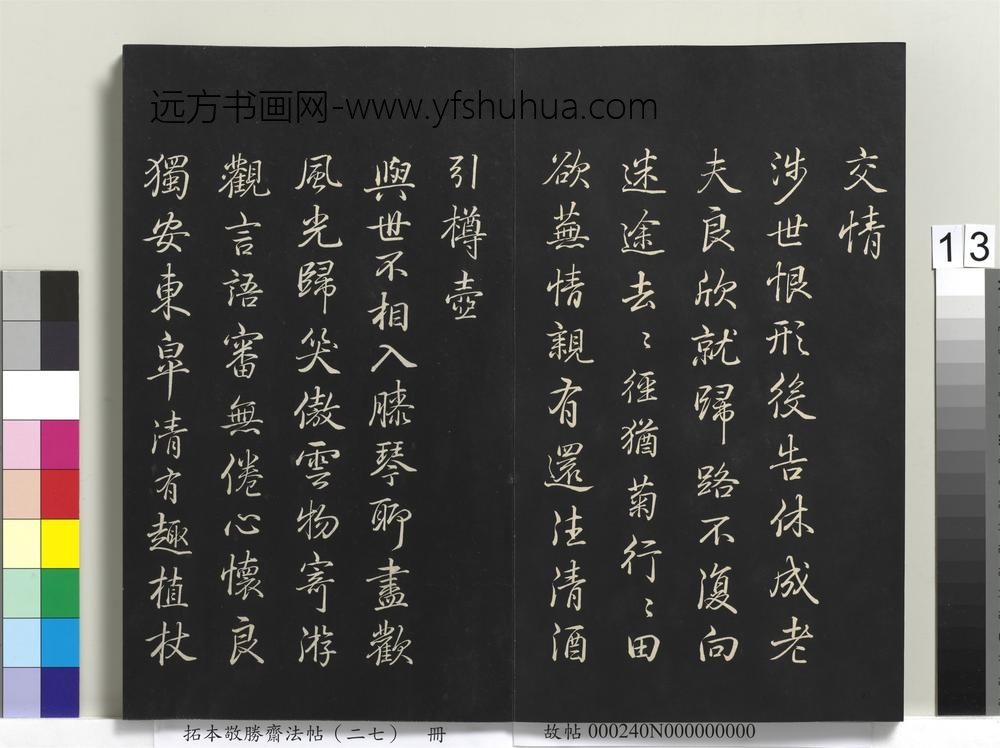 远方书画网-www.yfshuhua.com
交情
涉世恨形役告休成老
夫良欣就歸路不復向
迷途去〻徑猶菊行〻田
欲蕪情親有還往清酒
引樽壺
與世不相入膝琴聊盡歡
風光歸笑傲雲物寄游
觀言語審無倦心懷良
獨安東皐清有趣植杖
13
拓本敬勝齋法帖（二七） 冊
故帖 000240N000000000